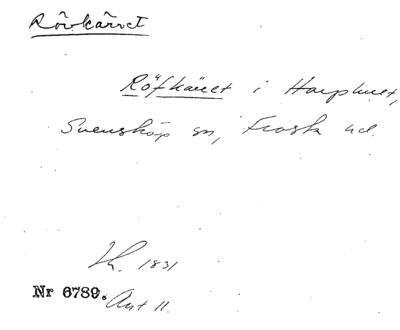 Rövkärret
Röfkäret i Harphult,
Svensköp sn, Frosta hd.
Lk. 1831
Nr 6789. Akt 11.